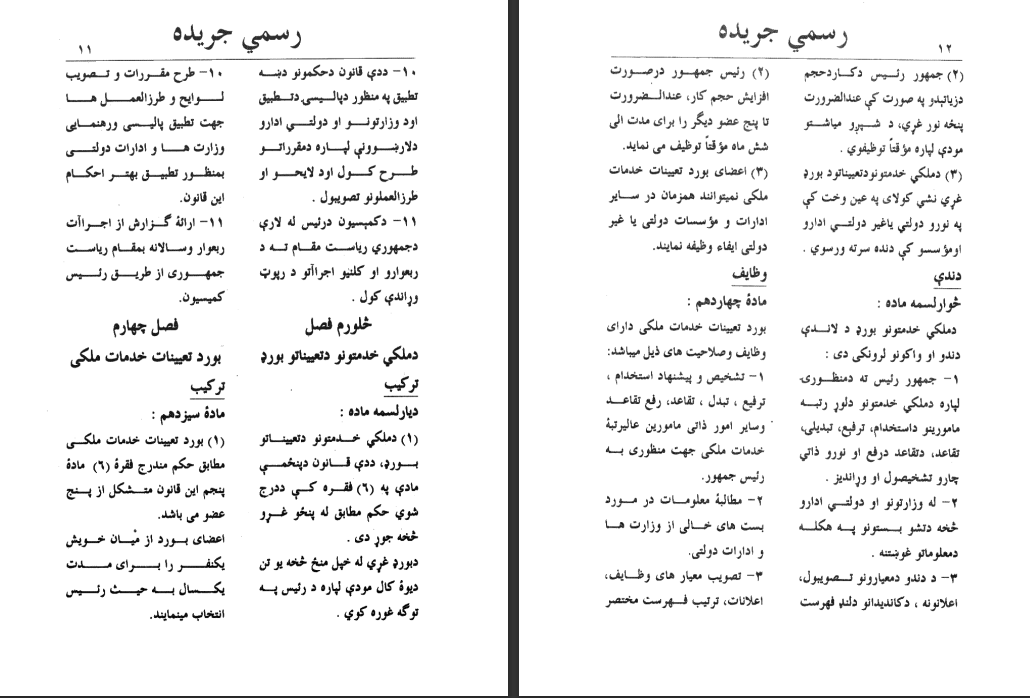 رسمي جريده
۱۱
۱۰- ددې قانون دحکمونو دښه
تطبيق په منظور دپاليسۍ دتطبيق
اود وزارتونو او دولتي ادارو
دلارښوونې لپاره دمقرراتو
طرح کول اود لايحو او
طرزالعملونو تصويبول .
۱۱- دکميسيون درئيس له لارې
دجمهوري رياست مقام ته د
ربعوارو او کلنيو اجراآتو د رپوټ
وړاندې کول .
څلورم فصل
دملکي خدمتونو دتعييناتو بورډ
ترکيب
ديارلسمه ماده :
(۱) دملکي خدمتونو دتعييناتو
بورډ، ددې قانون دپنځمې
مادې په (۶) فقره کې ددرج
شوي حکم مطابق له پنځو غړو
څخه جوړ دی .
دبورډ غړي له خپل منځ څخه يو تن
ديوۀ کال مودې لپاره د رئيس په
توگه غوره کوي .
۱۰- طرح مقررات و تصويب
لوايح و طرزالعمل ها
جهت تطبيق پاليسی ورهنمايی
وزارت ها و ادارات دولتی
بمنظور تطبيق بهتر احکام
اين قانون.
۱۱- ارائۀ گزارش از اجراآت
ربعوار وسالانه بمقام رياست
جمهوری از طريق رئيس
کميسيون.
فصل چهارم
بورد تعيينات خدمات ملکی
ترکيب
مادۀ سيزدهم :
(۱) بورد تعيينات خدمات ملکی
مطابق حکم مندرج فقرۀ (۶) مادۀ
پنجم اين قانون متشکل از پنج
عضو می باشد.
اعضای بورد از ميان خويش
يکنفر را برای مدت
يکسال به حيث رئيس
انتخاب مينمايند.
رسمي جريده
۱۲
(۲) جمهور رئيس دکاردحجم
دزياتېدو په صورت کې عندالضرورت
پنځه نور غړي، د شپږو مياشتو
مودې لپاره مؤقتاً توظيفوي .
(۳) دملکي خدمتونودتعييناتود بورډ
غړي نشي کولای په عين وخت کې
په نورو دولتي ياغير دولتي ادارو
اومؤسسو کې دنده سرته ورسوي .
دندې
څوارلسمه ماده :
دملکي خدمتونو بورډ د لاندې
دندو او واکونو لرونکی دی :
۱- جمهور رئيس ته دمنظورۍ
لپاره دملکي خدمتونو دلوړ رتبه
مامورينو داستخدام، ترفيع، تبديلۍ،
تقاعد، دتقاعد درفع او نورو ذاتي
چارو تشخيصول او وړانديز .
۲- له وزارتونو او دولتي ادارو
څخه دتشو بستونو په هکله
دمعلوماتو غوښتنه .
۳- د دندو دمعيارونو تصويبول،
اعلانونه ، دکانديدانو دلنډ فهرست
(۲) رئيس جمهور درصورت
افزايش حجم کار، عندالضرورت
تا پنج عضو ديگر را برای مدت الی
شش ماه مؤقتاً توظيف می نمايد.
(۳) اعضای بورد تعيينات خدمات
ملکی نميتوانند همزمان در ساير
ادارات و مؤسسات دولتی يا غير
دولتی ايفاء وظيفه نمايند.
وظايف
مادۀ چهاردهم :
بورد تعيينات خدمات ملکی دارای
وظايف وصلاحيت های ذيل ميباشد:
۱- تشخيص و پيشنهاد استخدام ،
ترفيع ، تبدل ، تقاعد، رفع تقاعد
وساير امور ذاتی مامورين عاليرتبۀ
خدمات ملکی جهت منظوری به
رئيس جمهور.
۲- مطالبۀ معلومات در مورد
بست های خالی از وزارت ها
و ادارات دولتی.
۳- تصويب معيار های وظايف،
اعلانات، ترتيب فهرست مختصر